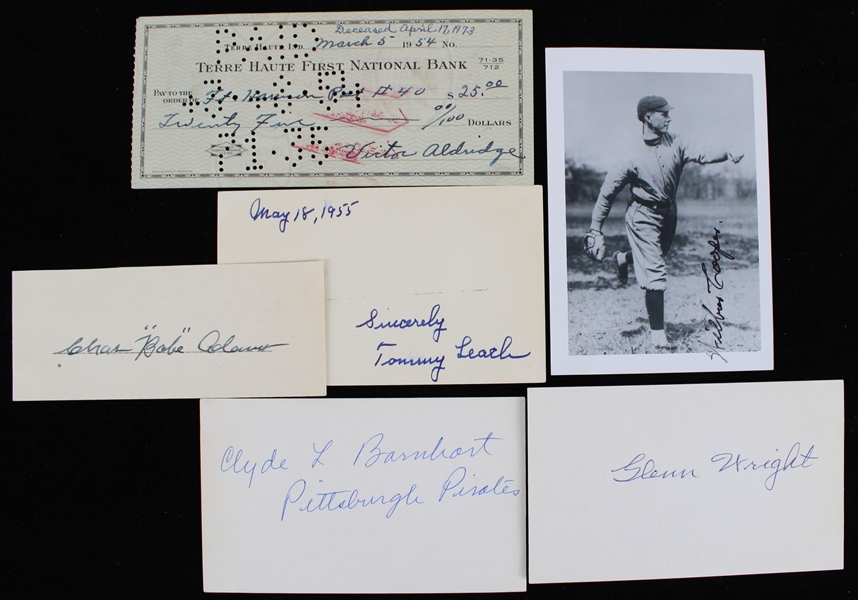 Deceased April 17, 1973
TERRE HAUTE, IND. March 5 1954 No.
71-35
712
TERRE HAUTE FIRST NATIONAL BANK
PAY TO THE
ORDER OF Ft. Harrison Post # 40 $ 25.00
Twenty Five 00/100 DOLLARS
Victor Aldridge
May 18, 1955
Sincerely
Tommy Leach
Chas "Babe" Adams
Wilbur Cooper.
Clyde L Barnhart
Pittsburgh Pirates
Glenn Wright